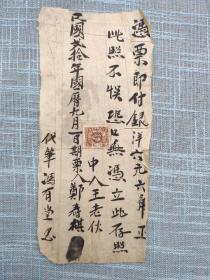 憑票即付銀洋六元六角正
此照不悞恐口無憑立此存照
民國貳拾年國曆九月一日期票人鄭存祺
中人王老伙
代筆馮百堂